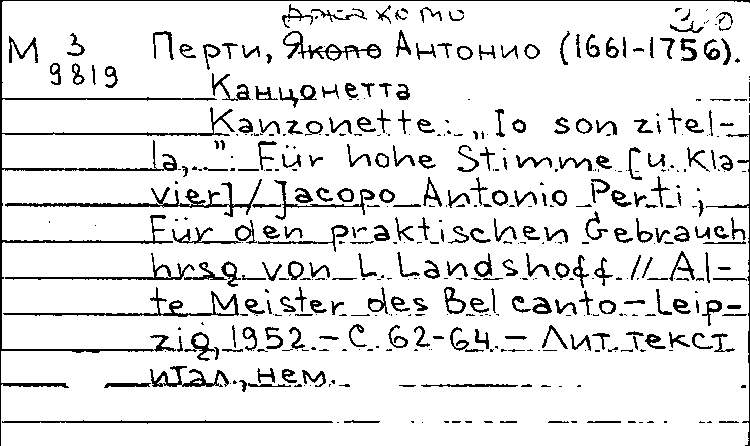 Джакомо
М 3 Перти, Якопо Антонио (1661-1756).
9819
Канцонетта
Kanzonette: „Io son zitel-
la,..": Für hohe Stimme [u. Kla-
vier] / Jacopo Antonio Perti;
Für den praktischen Gebrauch
hrsg. von L. Landshoff // Al-
te Meister des Bel canto – Leip-
zig, 1952. – С. 62-64. – Лит. текст
итал., нем.